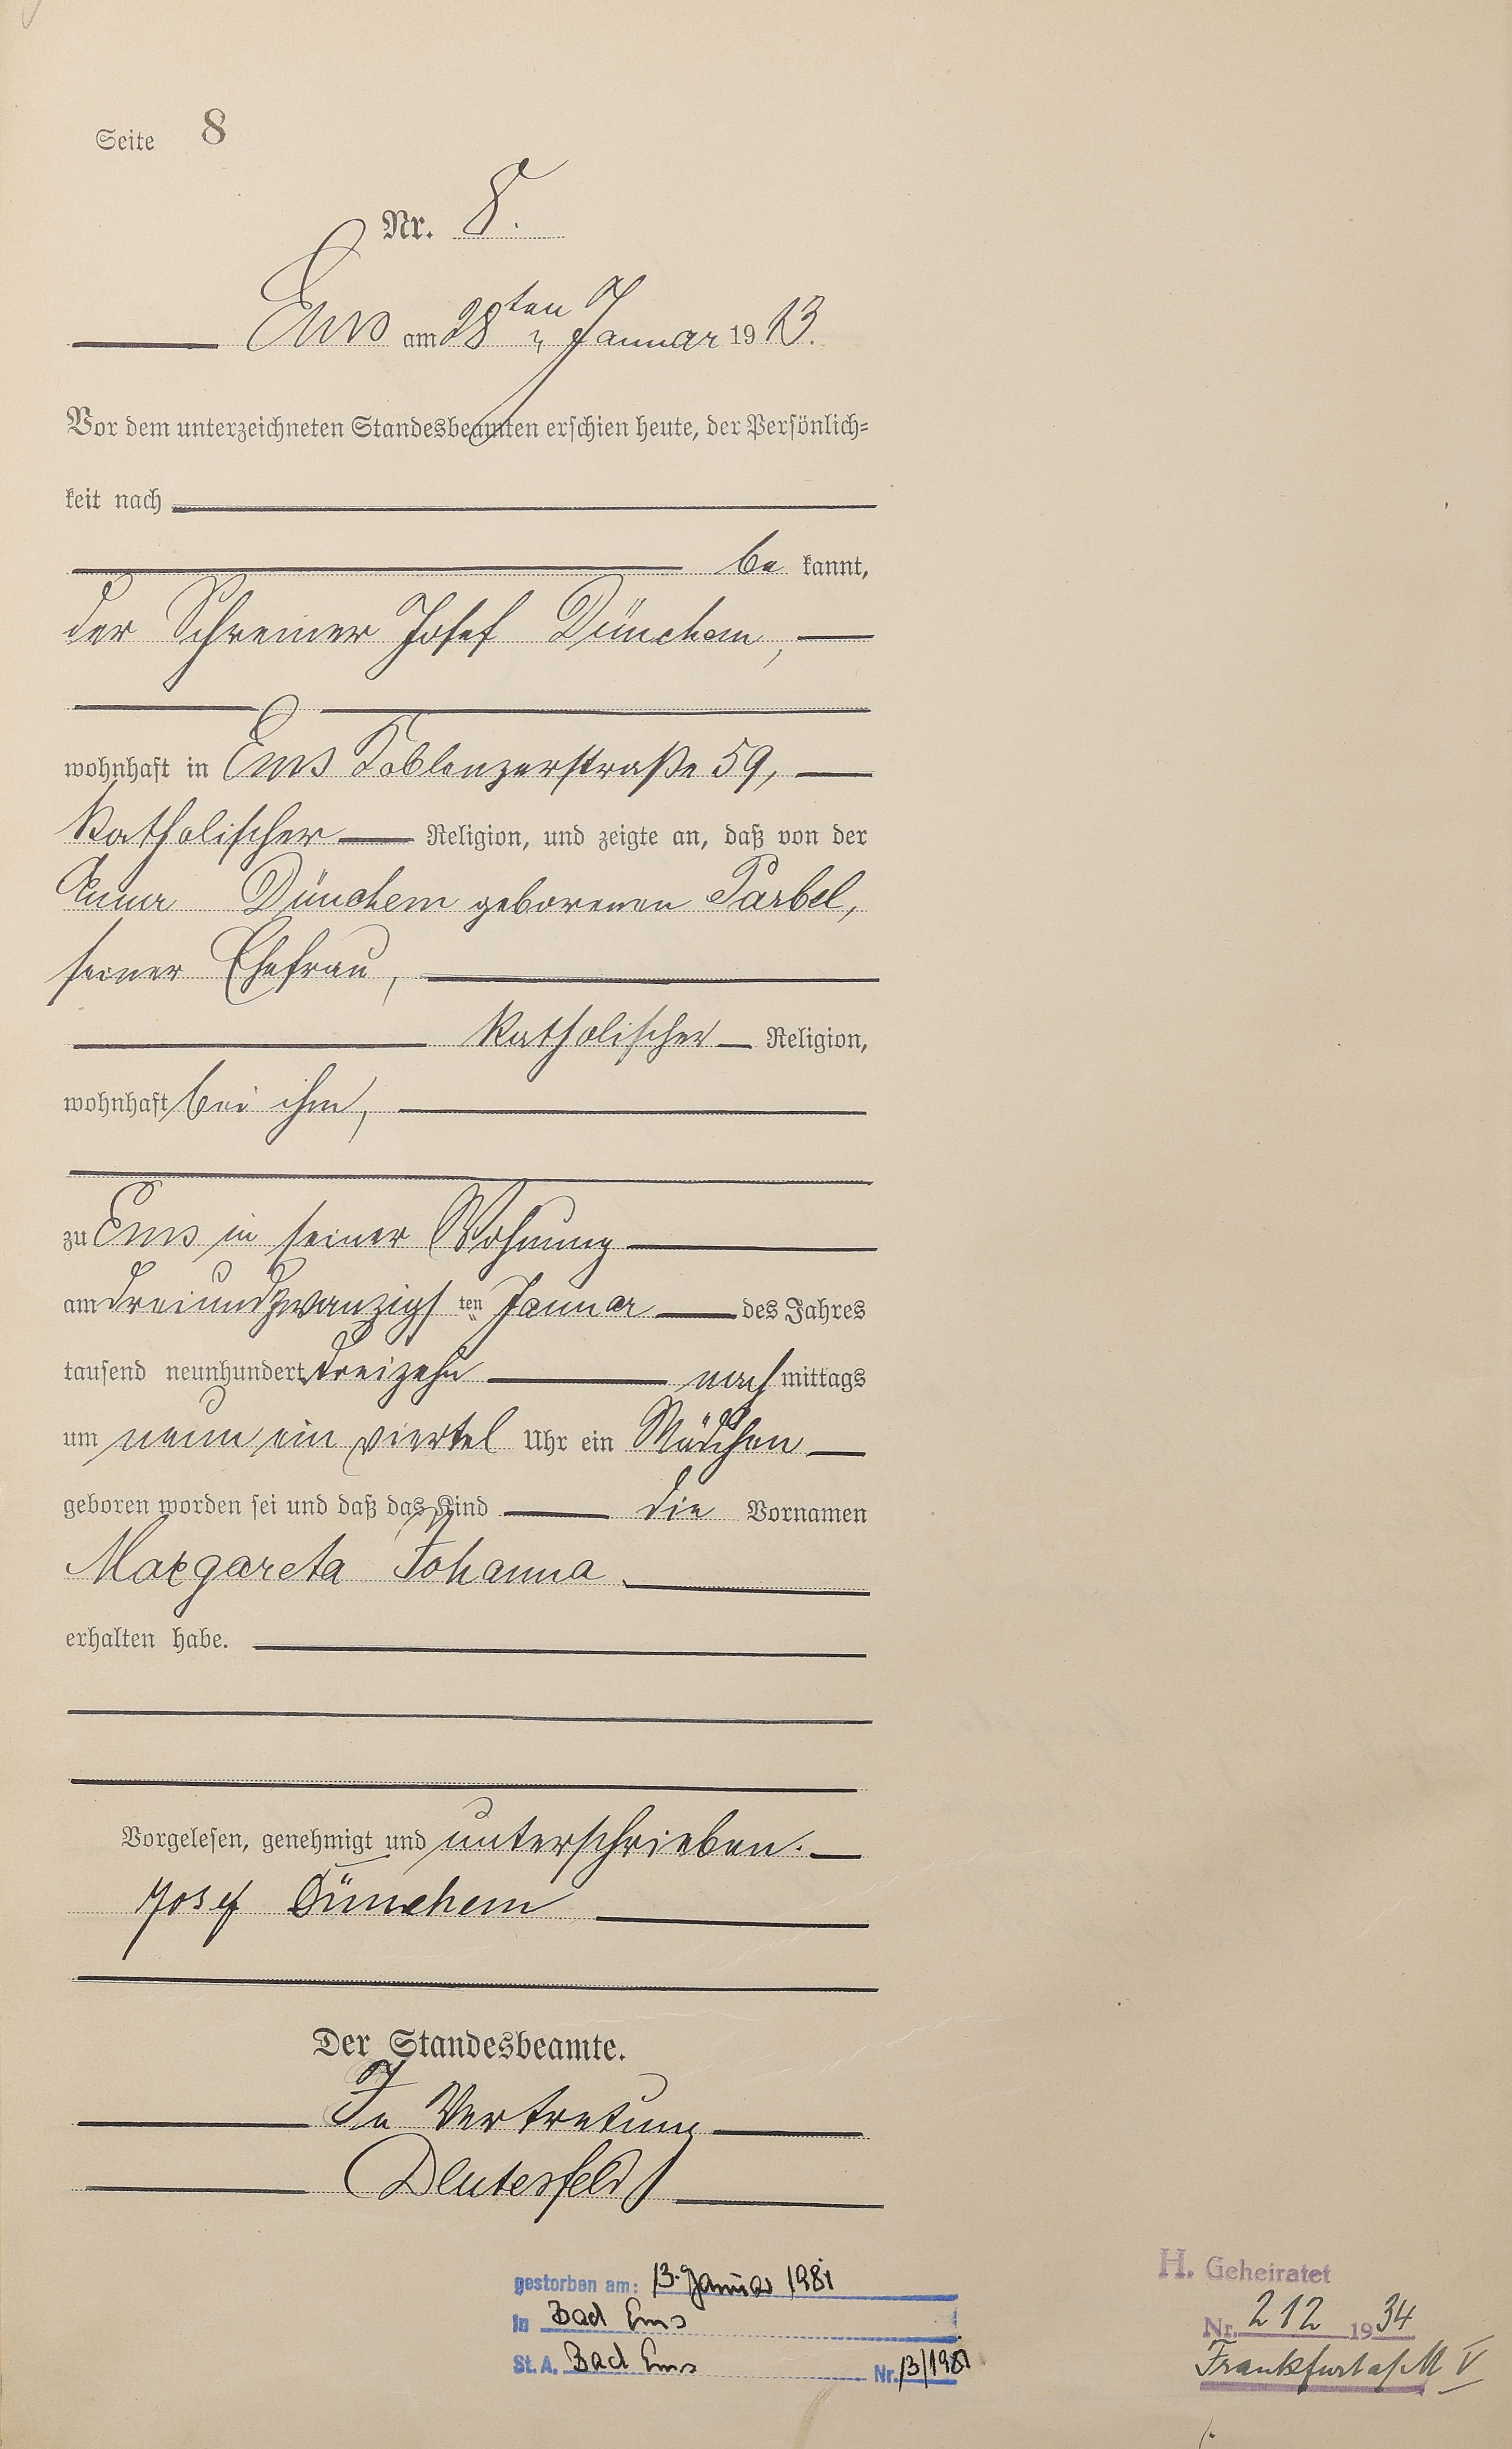 Seite 8
Nr. 8.
Ems am 28ten Januar 1913.
Vor dem unterzeichneten Standesbeamten erschien heute, der Persönlich=
keit nach
be kannt,
der Schreiner Josef Dünchem,
wohnhaft in Ems Koblenzerstraße 59,
katholischer Religion, und zeigte an, daß von der
Anna Dünchem geborenen Parbel,
seiner Ehefrau,
katholischer Religion,
wohnhaft bei ihm,
zu Ems in seiner Wohnung
am dreiundzwanzigsten Januar des Jahres
tausend neunhundert dreizehn nachmittags
um neun ein viertel Uhr ein Mädchen
geboren worden sei und daß das Kind die Vornamen
Margareta Johanna
erhalten habe.
Vorgelesen, genehmigt und unterschrieben.
Josef Dünchem
Der Standesbeamte.
In Vertretung
gestorben am: 13. Januar 1981
in Bad Ems
St. A. Bad Ems Nr. 13/1981
H. Geheiratet
Nr. 212 1934
Frankfurt a/M V